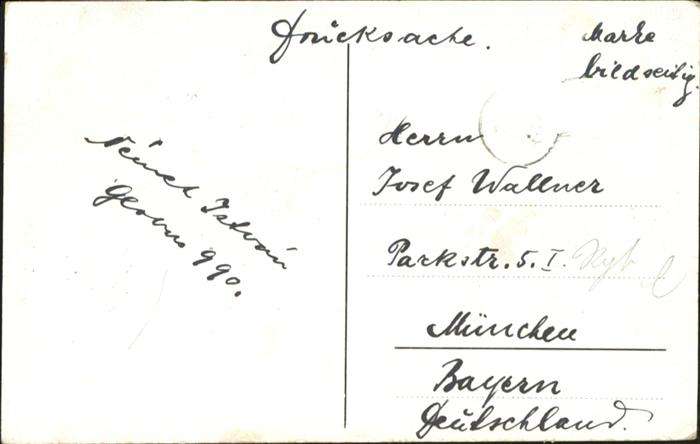 Drucksache.
Marke
bildseitig.
Német István
Globus 990.
Herrn
Josef Wallner
Parkstr. 5. I.
München
Bayern
Deutschland.